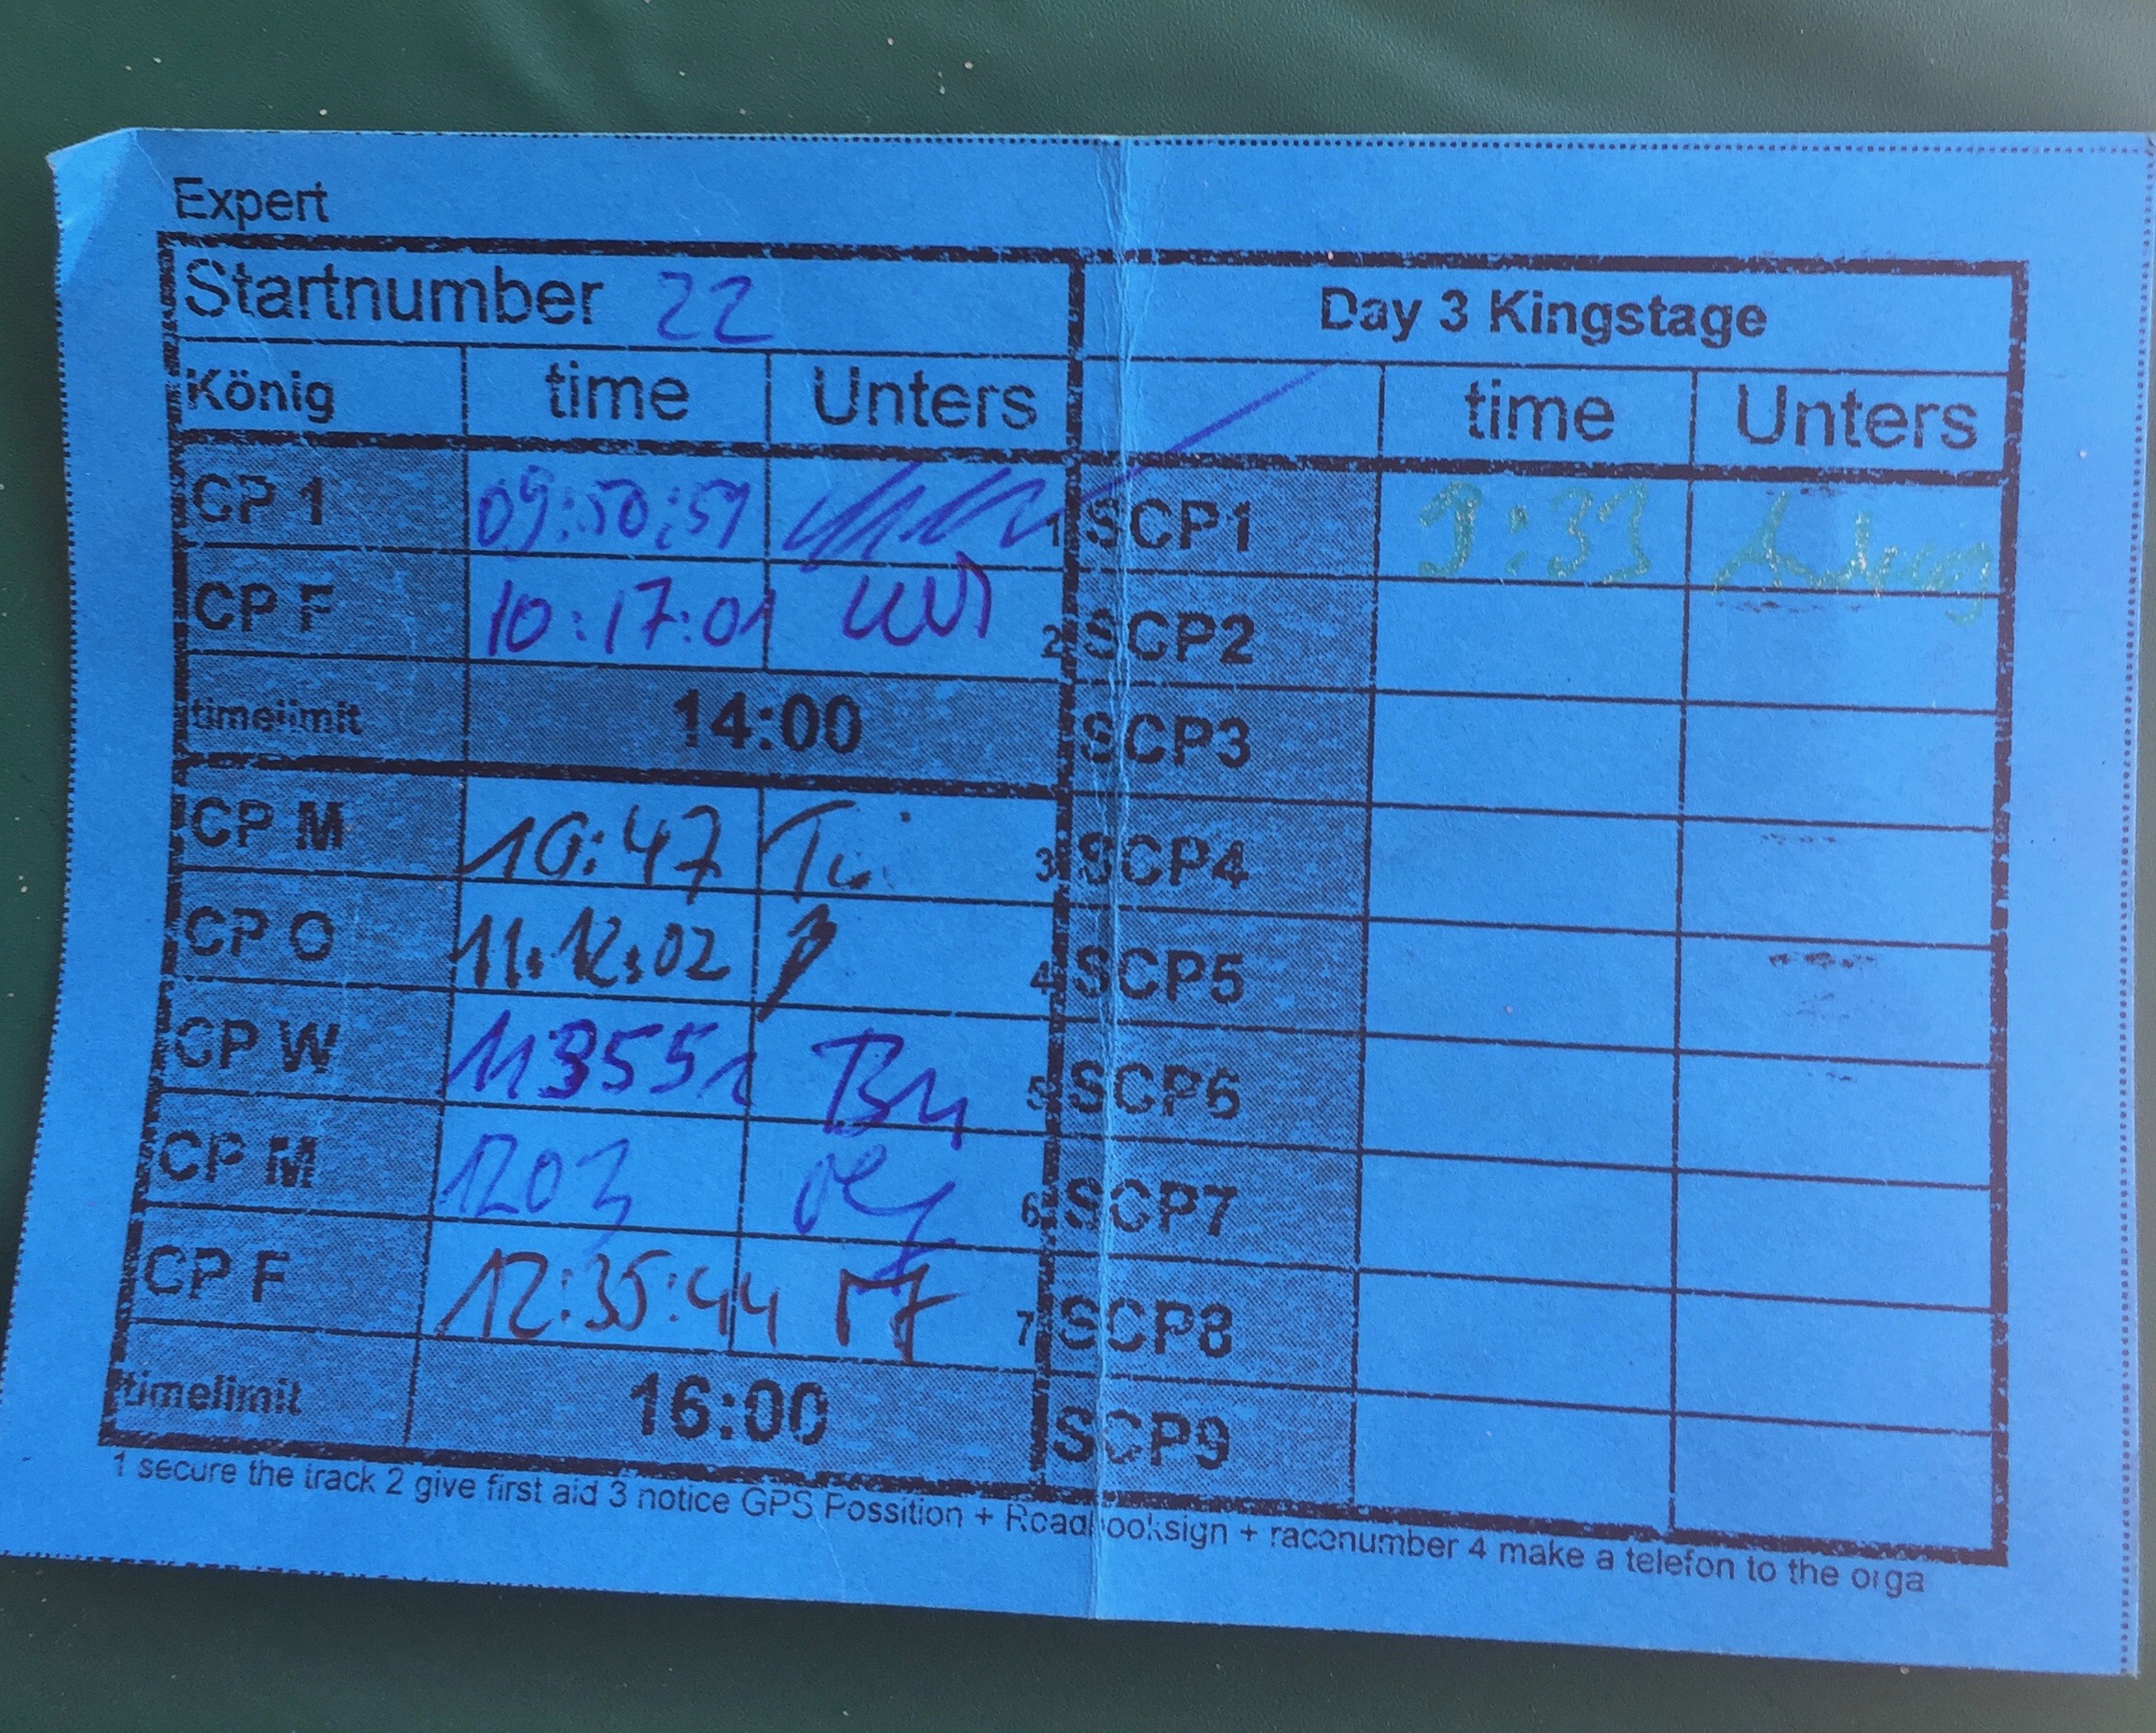 Expert
Startnumber 22
Day 3 Kingstage
König time Unters
time Unters
CP 1 09:50:51
1 SCP1 9:33
CP F 10:17:01
2 SCP2
timelimit 14:00
SCP3
CP M 10:47
3 SCP4
CP O 11:12:02
4 SCP5
CP W 113551
5 SCP6
CP M 1203
6 SCP7
CP F 12:35:44
7 SCP8
timelimit 16:00
SCP9
1 secure the track 2 give first aid 3 notice GPS Possition + Roadbooksign + racenumber 4 make a telefon to the orga